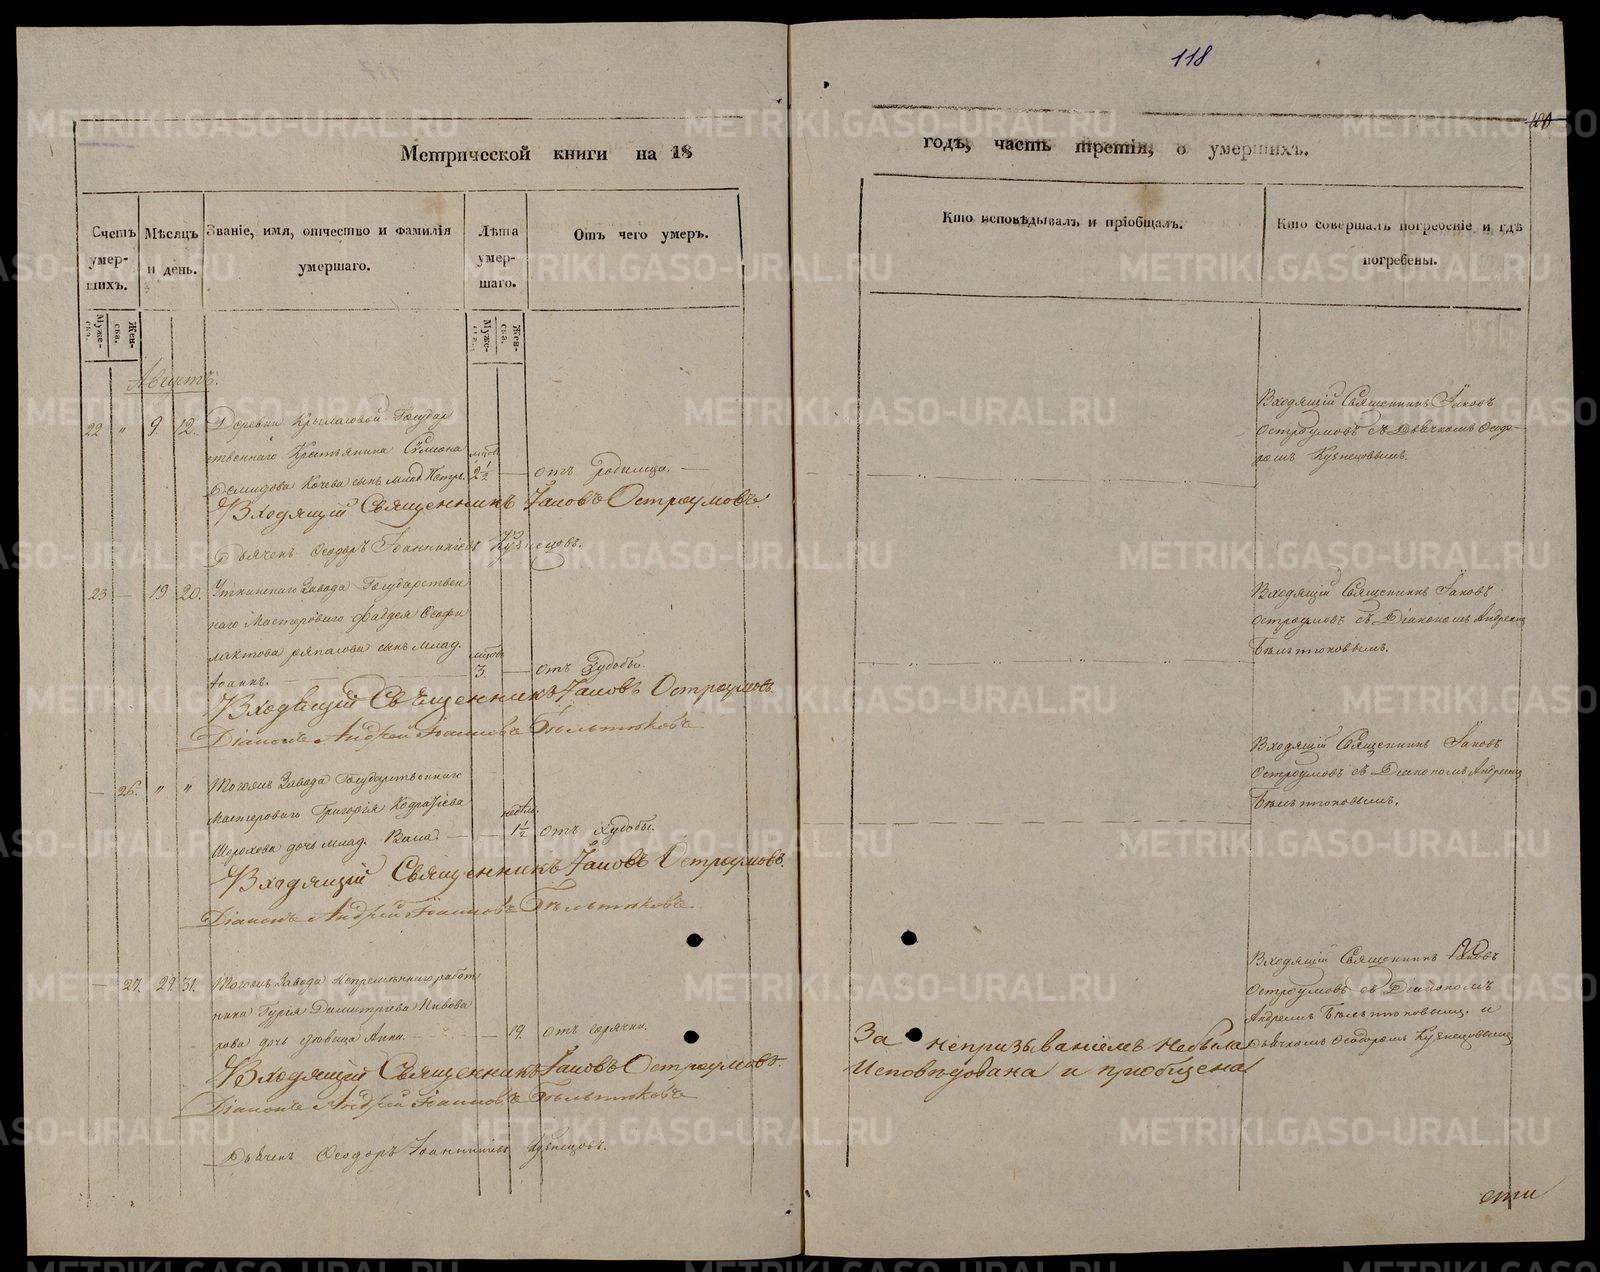 118
120
Метрической книги на 18
годъ, часть третія, о умершихъ.
Счетъ умер-шихъ.
Мѣсяцъ и день.
Званіе, имя, отчество и фамилія умершаго.
Лѣта умер-шаго.
Отъ чего умеръ.
Кто исповѣдывалъ и пріобщалъ.
Кто совершалъ погребеніе и гдѣ погребены.
Муже-ска.
Жен-ска.
Муже-ска.
Жен-ска.
Августъ.
22 " 9. 12. Деревни Крыласовой Государ
ственнаго Крестьянина Симіона
Демидова Кочева сынъ млад. Петръ.
мѣсяц. 2 1/2 — отъ родимца. —
Входящій Священникъ Іаковъ Остроумовъ.
Дьячекъ Ѳеодоръ Іоанникіевъ Кузнецовъ.
Входящій Священникъ Іаковъ
Остроумовъ съ Дьячкомъ Ѳеодо-
ромъ Кузнецовымъ.
23 — 19 20. Уткинскаго Завода Государствен
наго Мастероваго Фаддея Ѳеофи
лактова сынъ млад.
Іоаннъ.
3 — отъ худобы.
Входящій Священникъ Іаковъ Остроумовъ
Діаконъ Андрей Іоанновъ Бѣльтюковъ
Входящій Священникъ Іаковъ
Остроумовъ съ Діакономъ Андреемъ
Бѣльтюковымъ.
— 26. " " Тогожъ Завода Государственнаго
Мастероваго Григорія
дочь млад.
недѣль. — 1 1/2 отъ худобы.
Входящій Священникъ Іаковъ Остроумовъ.
Діаконъ Андрей Іоанновъ Бѣльтюковъ
Входящій Священникъ Іаковъ
Остроумовъ съ Діакономъ Андреемъ
Бѣльтюковымъ.
— 27. 29. 31. Тогожъ Завода непремѣннаго работ
ника Гурія Димитріева Пивова
рова дочь дѣвица Анна. — — 19. отъ горячки.
Входящій Священникъ Іаковъ Остроумовъ.
Діаконъ Андрей Іоанновъ Бѣльтюковъ
Дьячекъ Ѳеодоръ Іоанникіевъ Кузнецовъ.
За непризываніемъ небыла
исповѣдована и приобщена
Входящій Священникъ Іаковъ
Остроумовъ съ Діакономъ
Андреемъ Бѣльтюковымъ. и
Дьячкомъ Ѳеодоромъ Кузнецовымъ
METRIKI.GASO-URAL.RU